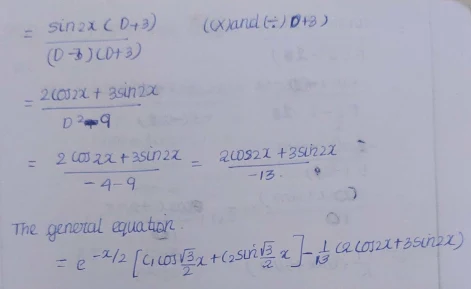 = sin2x (D+3) / (D-3)(D+3) ((x) and (÷) D+3)
= 2cos2x + 3sin2x / D²-9
= 2cos2x + 3sin2x / -4-9 = 2cos2x + 3sin2x / -13.
The general equation.
= e^-x/2 [c₁ cos √3/2 x + c₂ sin √3/2 x] - 1/13 (2cos2x + 3sin2x)